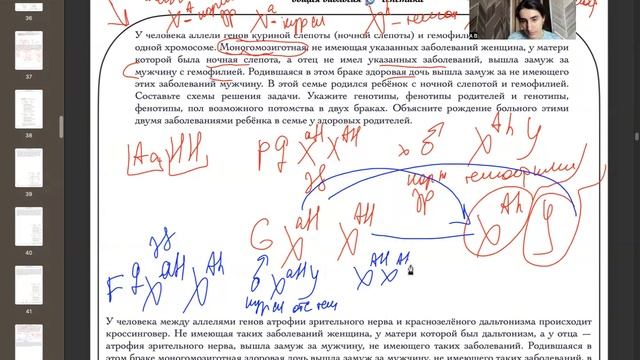 общая биология
генетика
X^A - норм
зр
X^a - кур сл
У человека аллели генов куриной слепоты (ночной слепоты) и гемофилии
одной хромосоме. Моногомозиготная, не имеющая указанных заболеваний женщина, у матери
которой была ночная слепота, а отец не имел указанных заболеваний, вышла замуж за
мужчину с гемофилией. Родившаяся в этом браке здоровая дочь вышла замуж за не имеющего
этих заболеваний мужчину. В этой семье родился ребёнок с ночной слепотой и гемофилией.
Составьте схемы решения задачи. Укажите генотипы, фенотипы родителей и генотипы,
фенотипы, пол возможного потомства в двух браках. Объясните рождение больного этими
двумя заболеваниями ребёнка в семье у здоровых родителей.
Aa HH P ♀ X^aH X^AH x ♂ X^Ah y
зд норм зр гемофилия
G X^aH X^AH X^Ah y
зд
F ♀ X^aH X^Ah ♂ X^aH y X^AH X^Ah
У человека между аллелями генов атрофии зрительного нерва и краснозелёного дальтонизма происходит
кроссинговер. Не имеющая таких заболеваний женщина, у матери которой был дальтонизм, а у отца —
атрофия зрительного нерва, вышла замуж за мужчину, не имеющего таких заболеваний. Родившаяся в
этом браке моногомозиготная здоровая дочь вышла замуж за мужчину, не имеющего таких заболеваний, в
37
38
39
40
41